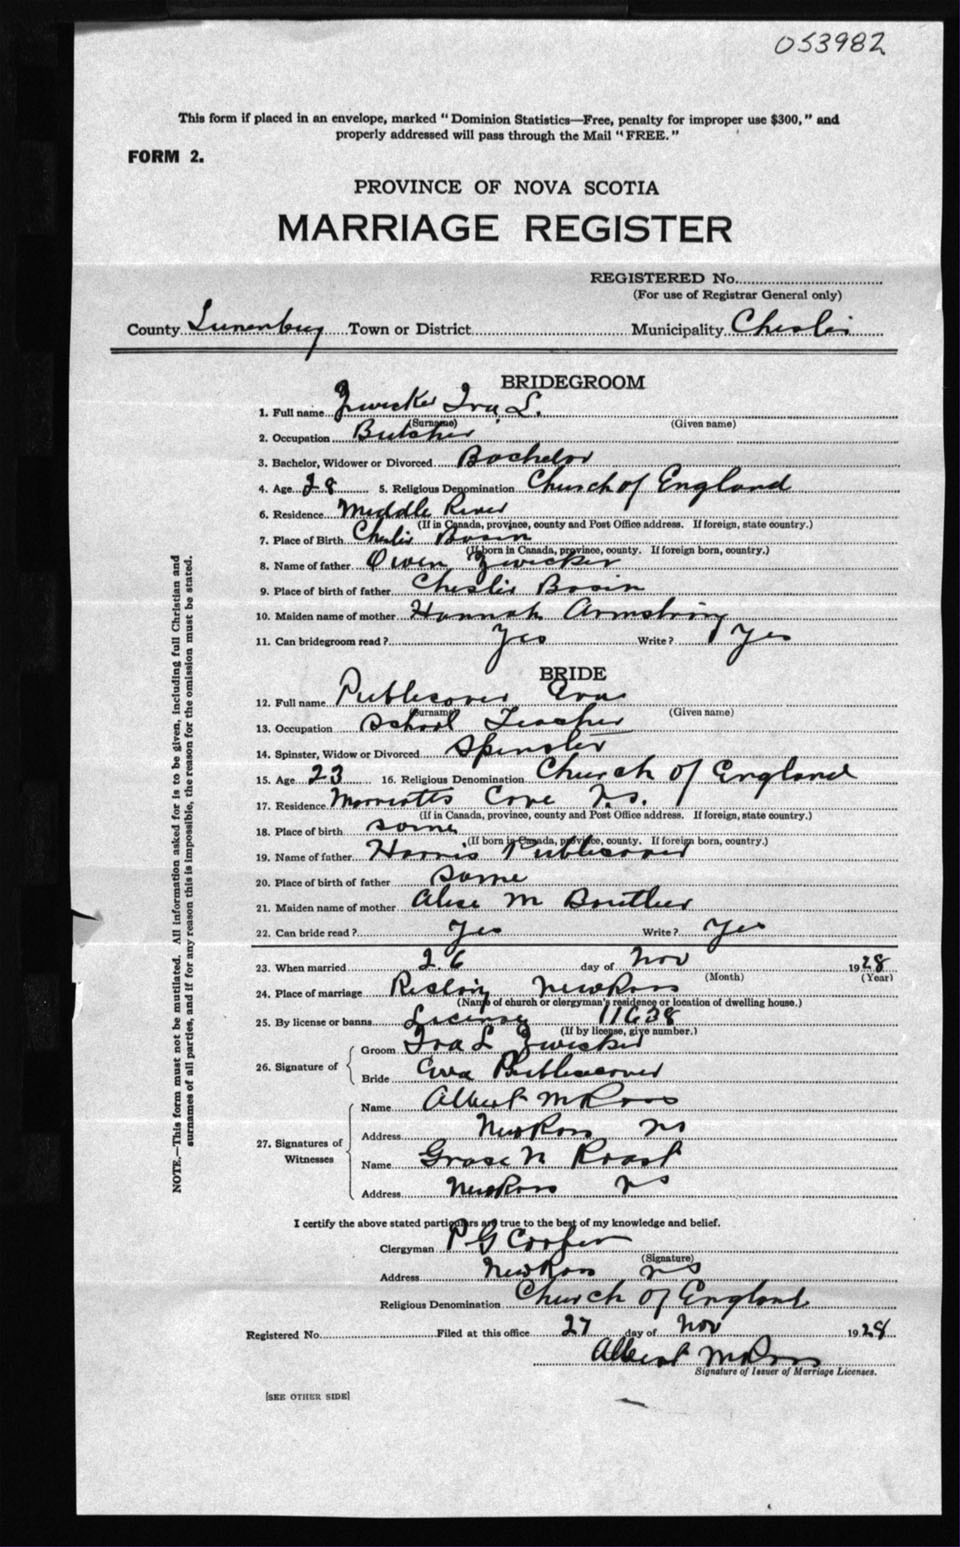 053982
This form if placed in an envelope, marked "Dominion Statistics—Free, penalty for improper use $300," and
properly addressed will pass through the Mail "FREE."
FORM 2.
PROVINCE OF NOVA SCOTIA
MARRIAGE REGISTER
REGISTERED No.
(For use of Registrar General only)
County Lunenburg Town or District Municipality Chester
BRIDEGROOM
1. Full name Zwicker Ira L.
(Surname) (Given name)
2. Occupation Butcher
3. Bachelor, Widower or Divorced Bachelor
4. Age 28 5. Religious Denomination Church of England
6. Residence Middle River
(If in Canada, province, county and Post Office address. If foreign, state country.)
7. Place of Birth Chester Basin
(If born in Canada, province, county. If foreign born, country.)
8. Name of father Owen Zwicker
9. Place of birth of father Chester Basin
10. Maiden name of mother Hannah Armstrong
11. Can bridegroom read? Yes Write? Yes
BRIDE
12. Full name Publicover Eva
(Surname) (Given name)
13. Occupation School Teacher
14. Spinster, Widow or Divorced Spinster
15. Age 23 16. Religious Denomination Church of England
17. Residence Marriotts Cove N.S.
(If in Canada, province, county and Post Office address. If foreign, state country.)
18. Place of birth same
(If born in Canada, province, county. If foreign born, country.)
19. Name of father Harris Publicover
20. Place of birth of father Same
21. Maiden name of mother Alice M Boutlier
22. Can bride read? Yes Write? Yes
23. When married 26 day of Nov 1928
(Month) (Year)
24. Place of marriage New Ross
(Name of church or clergyman's residence or location of dwelling house.)
25. By license or banns License 11638
(If by license, give number.)
26. Signature of
Groom Ira L Zwicker
Bride Eva Publicover
27. Signatures of Witnesses
Name Albert M Ross
Address New Ross NS
Name Grace N Roast
Address New Ross NS
I certify the above stated particulars are true to the best of my knowledge and belief.
Clergyman P G Corfer
(Signature)
Address New Ross NS
Religious Denomination Church of England
Registered No. Filed at this office 27 day of Nov 1928
Albert M Ross
Signature of Issuer of Marriage Licenses.
[SEE OTHER SIDE]
NOTE.—This form must not be mutilated. All information asked for is to be given, including full Christian and
surnames of all parties, and if for any reason this is impossible, the reason for the omission must be stated.